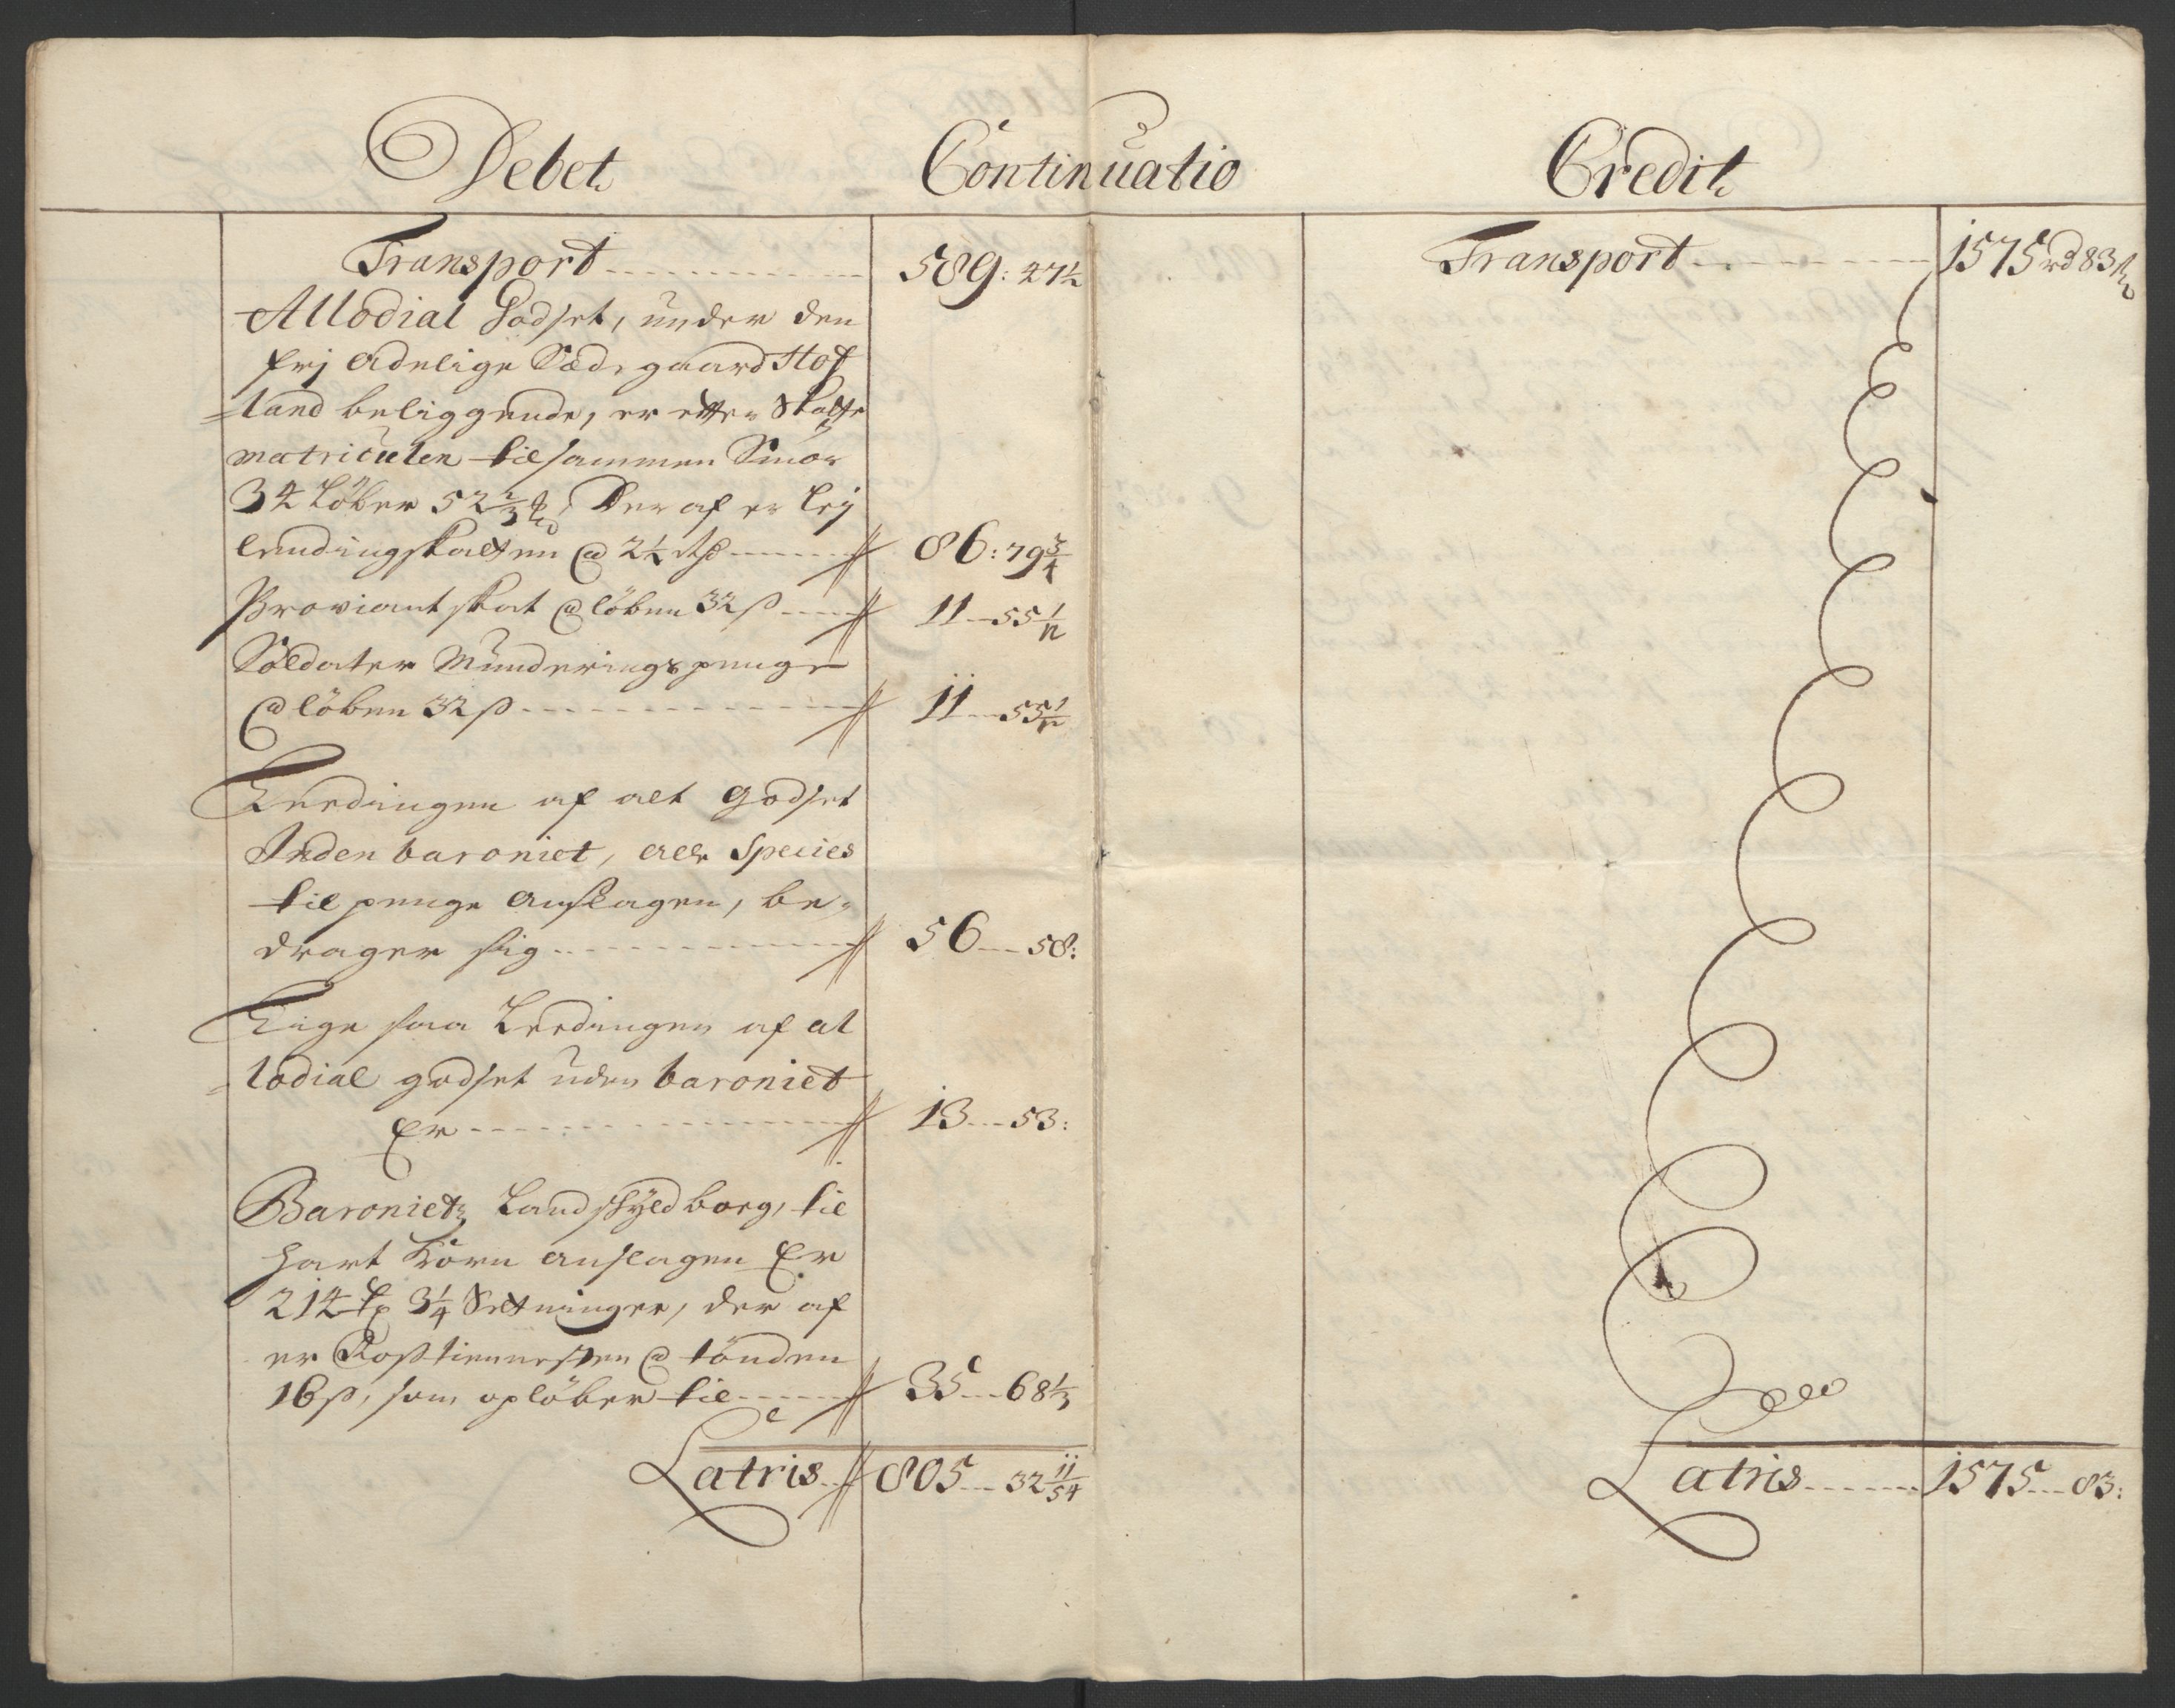 Debet
Continuatio
Credit
Transport 589: 27½
Allodial Godset, under den
frj Adelige Sædegaard Hof
=land beliggende, er efter Skatte
matriculen tilsammen Smör
34 Löber 52⅔ ℔, Der af er Lej
lendingskatten @ 2½ Rd 86: 79¾
Proviantskat @ löben 32 ß 11-55 1/12
Soldater Munderingspenge
@ löben 32 ß 11-55 1/12
Leedingen af alt godset
Inden baroniet, alle Species
til penge anslagen, be=
drager sig 56-58:
Lige saa Leedingen af al
=lodial godset uden baroniet
Er 13-53:
Baroniets Landskyld borg, til
hart korn anslagen Er
214 Tr 3¼ Settninger, der af
er Rostiennesten @ tönden
16 ß, som oplöber til 35-68⅓
Latris 805-32 11/54
Transport 1575 rd 83 ß
Latris 1575-83: